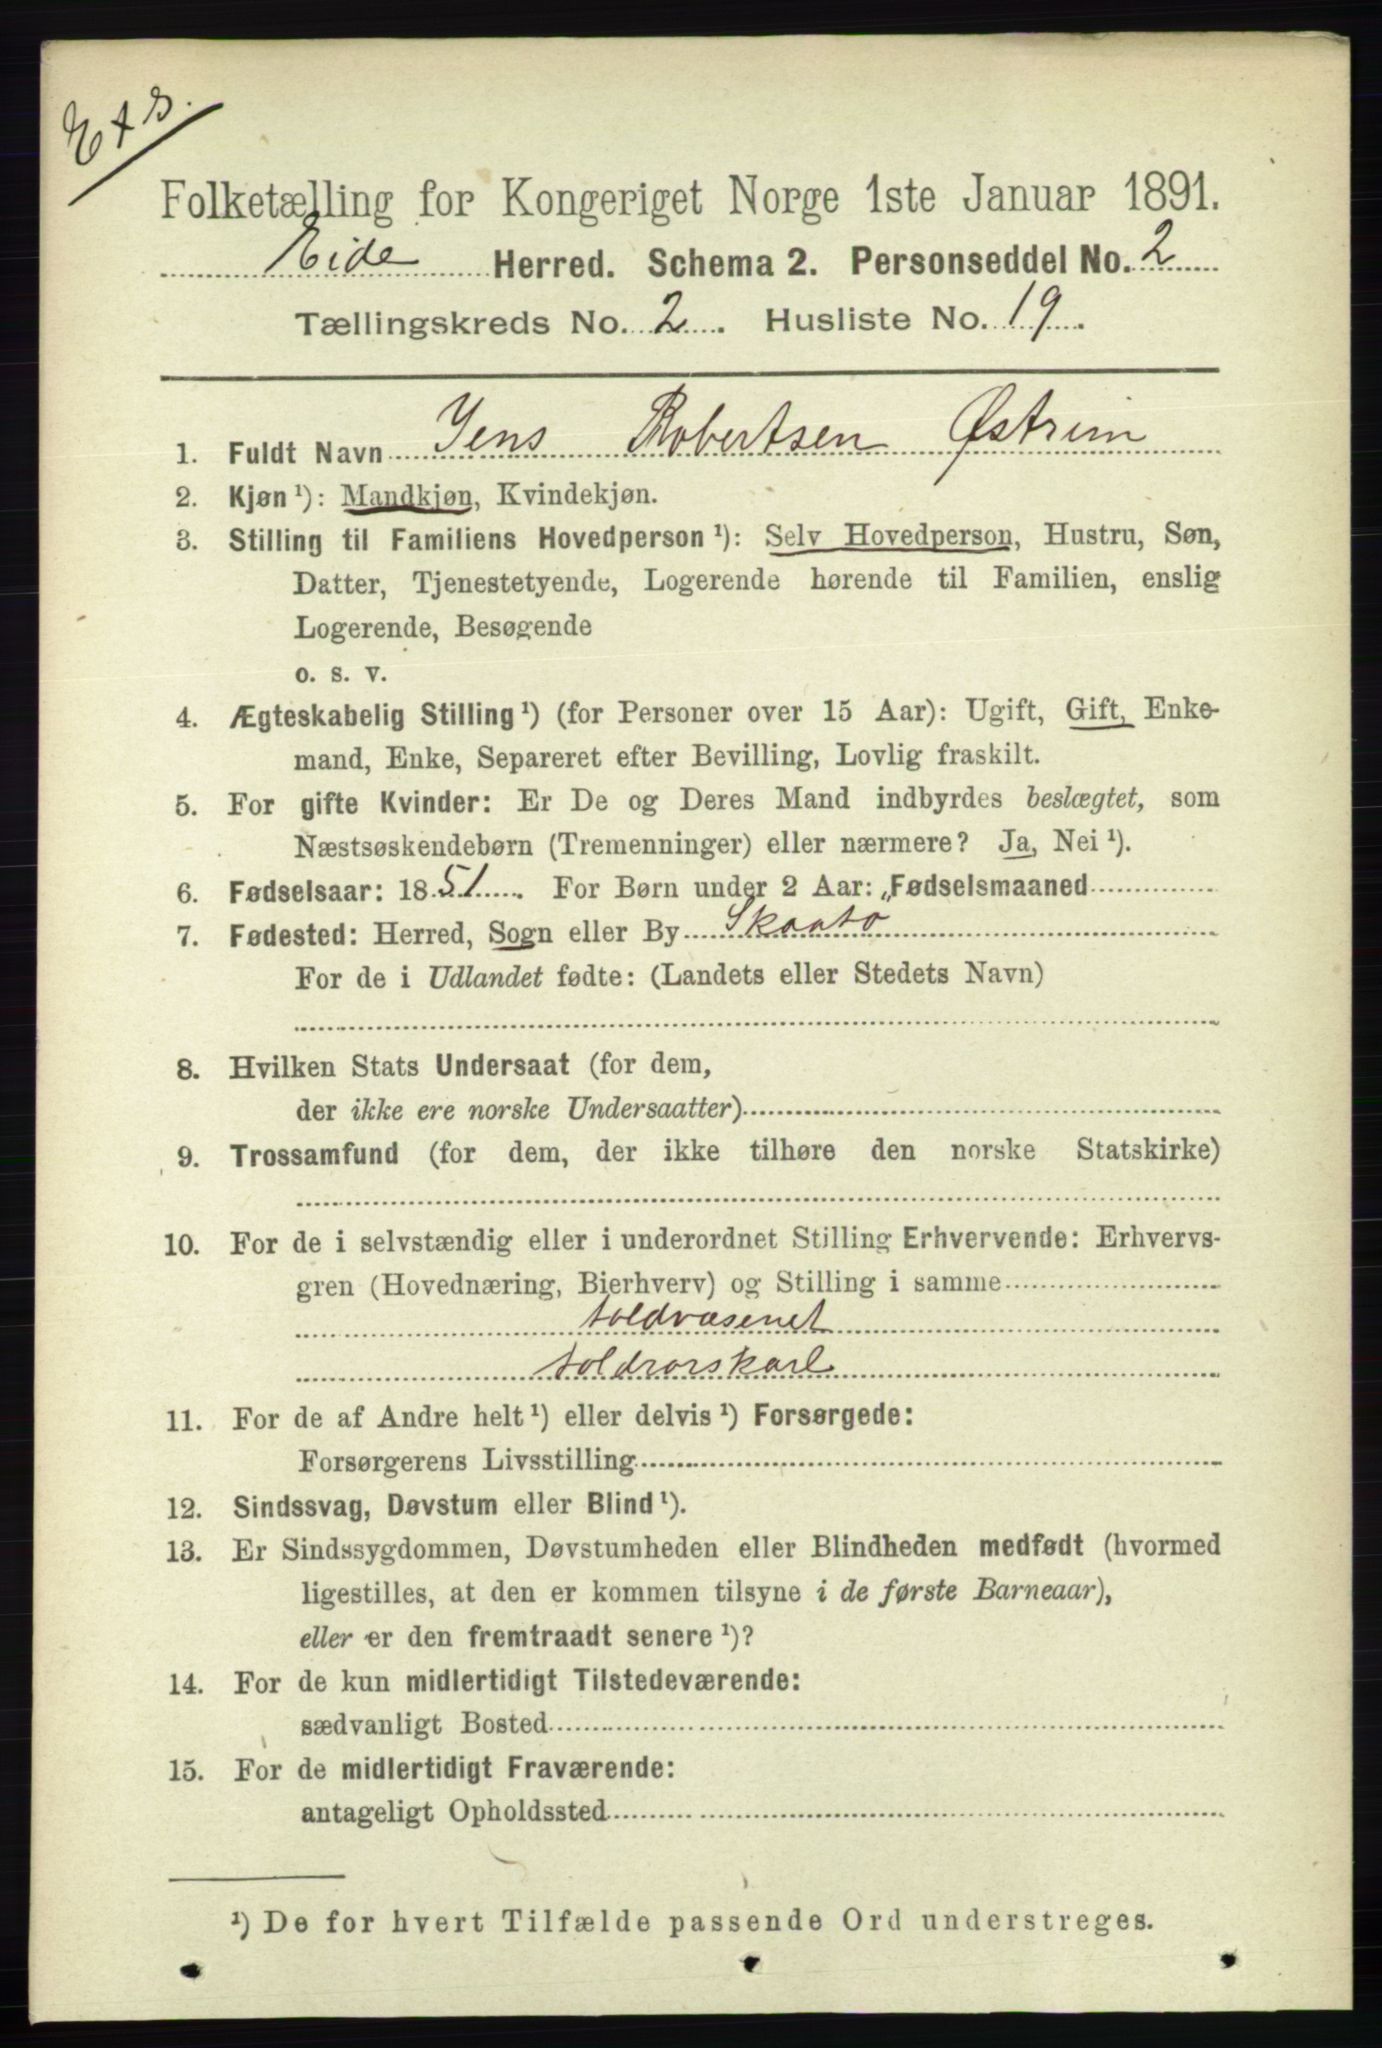 Exs.
Folketælling for Kongeriget Norge 1ste Januar 1891.
Eide Herred. Schema 2. Personseddel No. 2
Tællingskreds No. 2. Husliste No. 19.
1. Fuldt Navn Jens Robertsen Østrim
2. Kjøn ¹): Mandkjøn, Kvindekjøn.
3. Stilling til Familiens Hovedperson ¹): Selv Hovedperson, Hustru, Søn,
Datter, Tjenestetyende, Logerende hørende til Familien, enslig
Logerende, Besøgende
o. s. v.
4. Ægteskabelig Stilling ¹) (for Personer over 15 Aar): Ugift, Gift, Enke-
mand, Enke, Separeret efter Bevilling, Lovlig fraskilt.
5. For gifte Kvinder: Er De og Deres Mand indbyrdes beslægtet, som
Næstsøskendebørn (Tremenninger) eller nærmere? Ja, Nei ¹).
6. Fødselsaar: 1851. For Børn under 2 Aar: Fødselsmaaned
7. Fødested: Herred, Sogn eller By Skaato
For de i Udlandet fødte: (Landets eller Stedets Navn)
8. Hvilken Stats Undersaat (for dem,
der ikke ere norske Undersaatter)
9. Trossamfund (for dem, der ikke tilhøre den norske Statskirke)
10. For de i selvstændig eller i underordnet Stilling Erhvervende: Erhvervs-
gren (Hovednæring, Bierhverv) og Stilling i samme
toldvæsenet
toldrorskarl
11. For de af Andre helt ¹) eller delvis ¹) Forsørgede:
Forsørgerens Livsstilling
12. Sindssvag, Døvstum eller Blind ¹).
13. Er Sindssygdommen, Døvstumheden eller Blindheden medfødt (hvormed
ligestilles, at den er kommen tilsyne i de første Barneaar),
eller er den fremtraadt senere ¹)?
14. For de kun midlertidigt Tilstedeværende:
sædvanligt Bosted
15. For de midlertidigt Fraværende:
antageligt Opholdssted
¹) De for hvert Tilfælde passende Ord understreges.